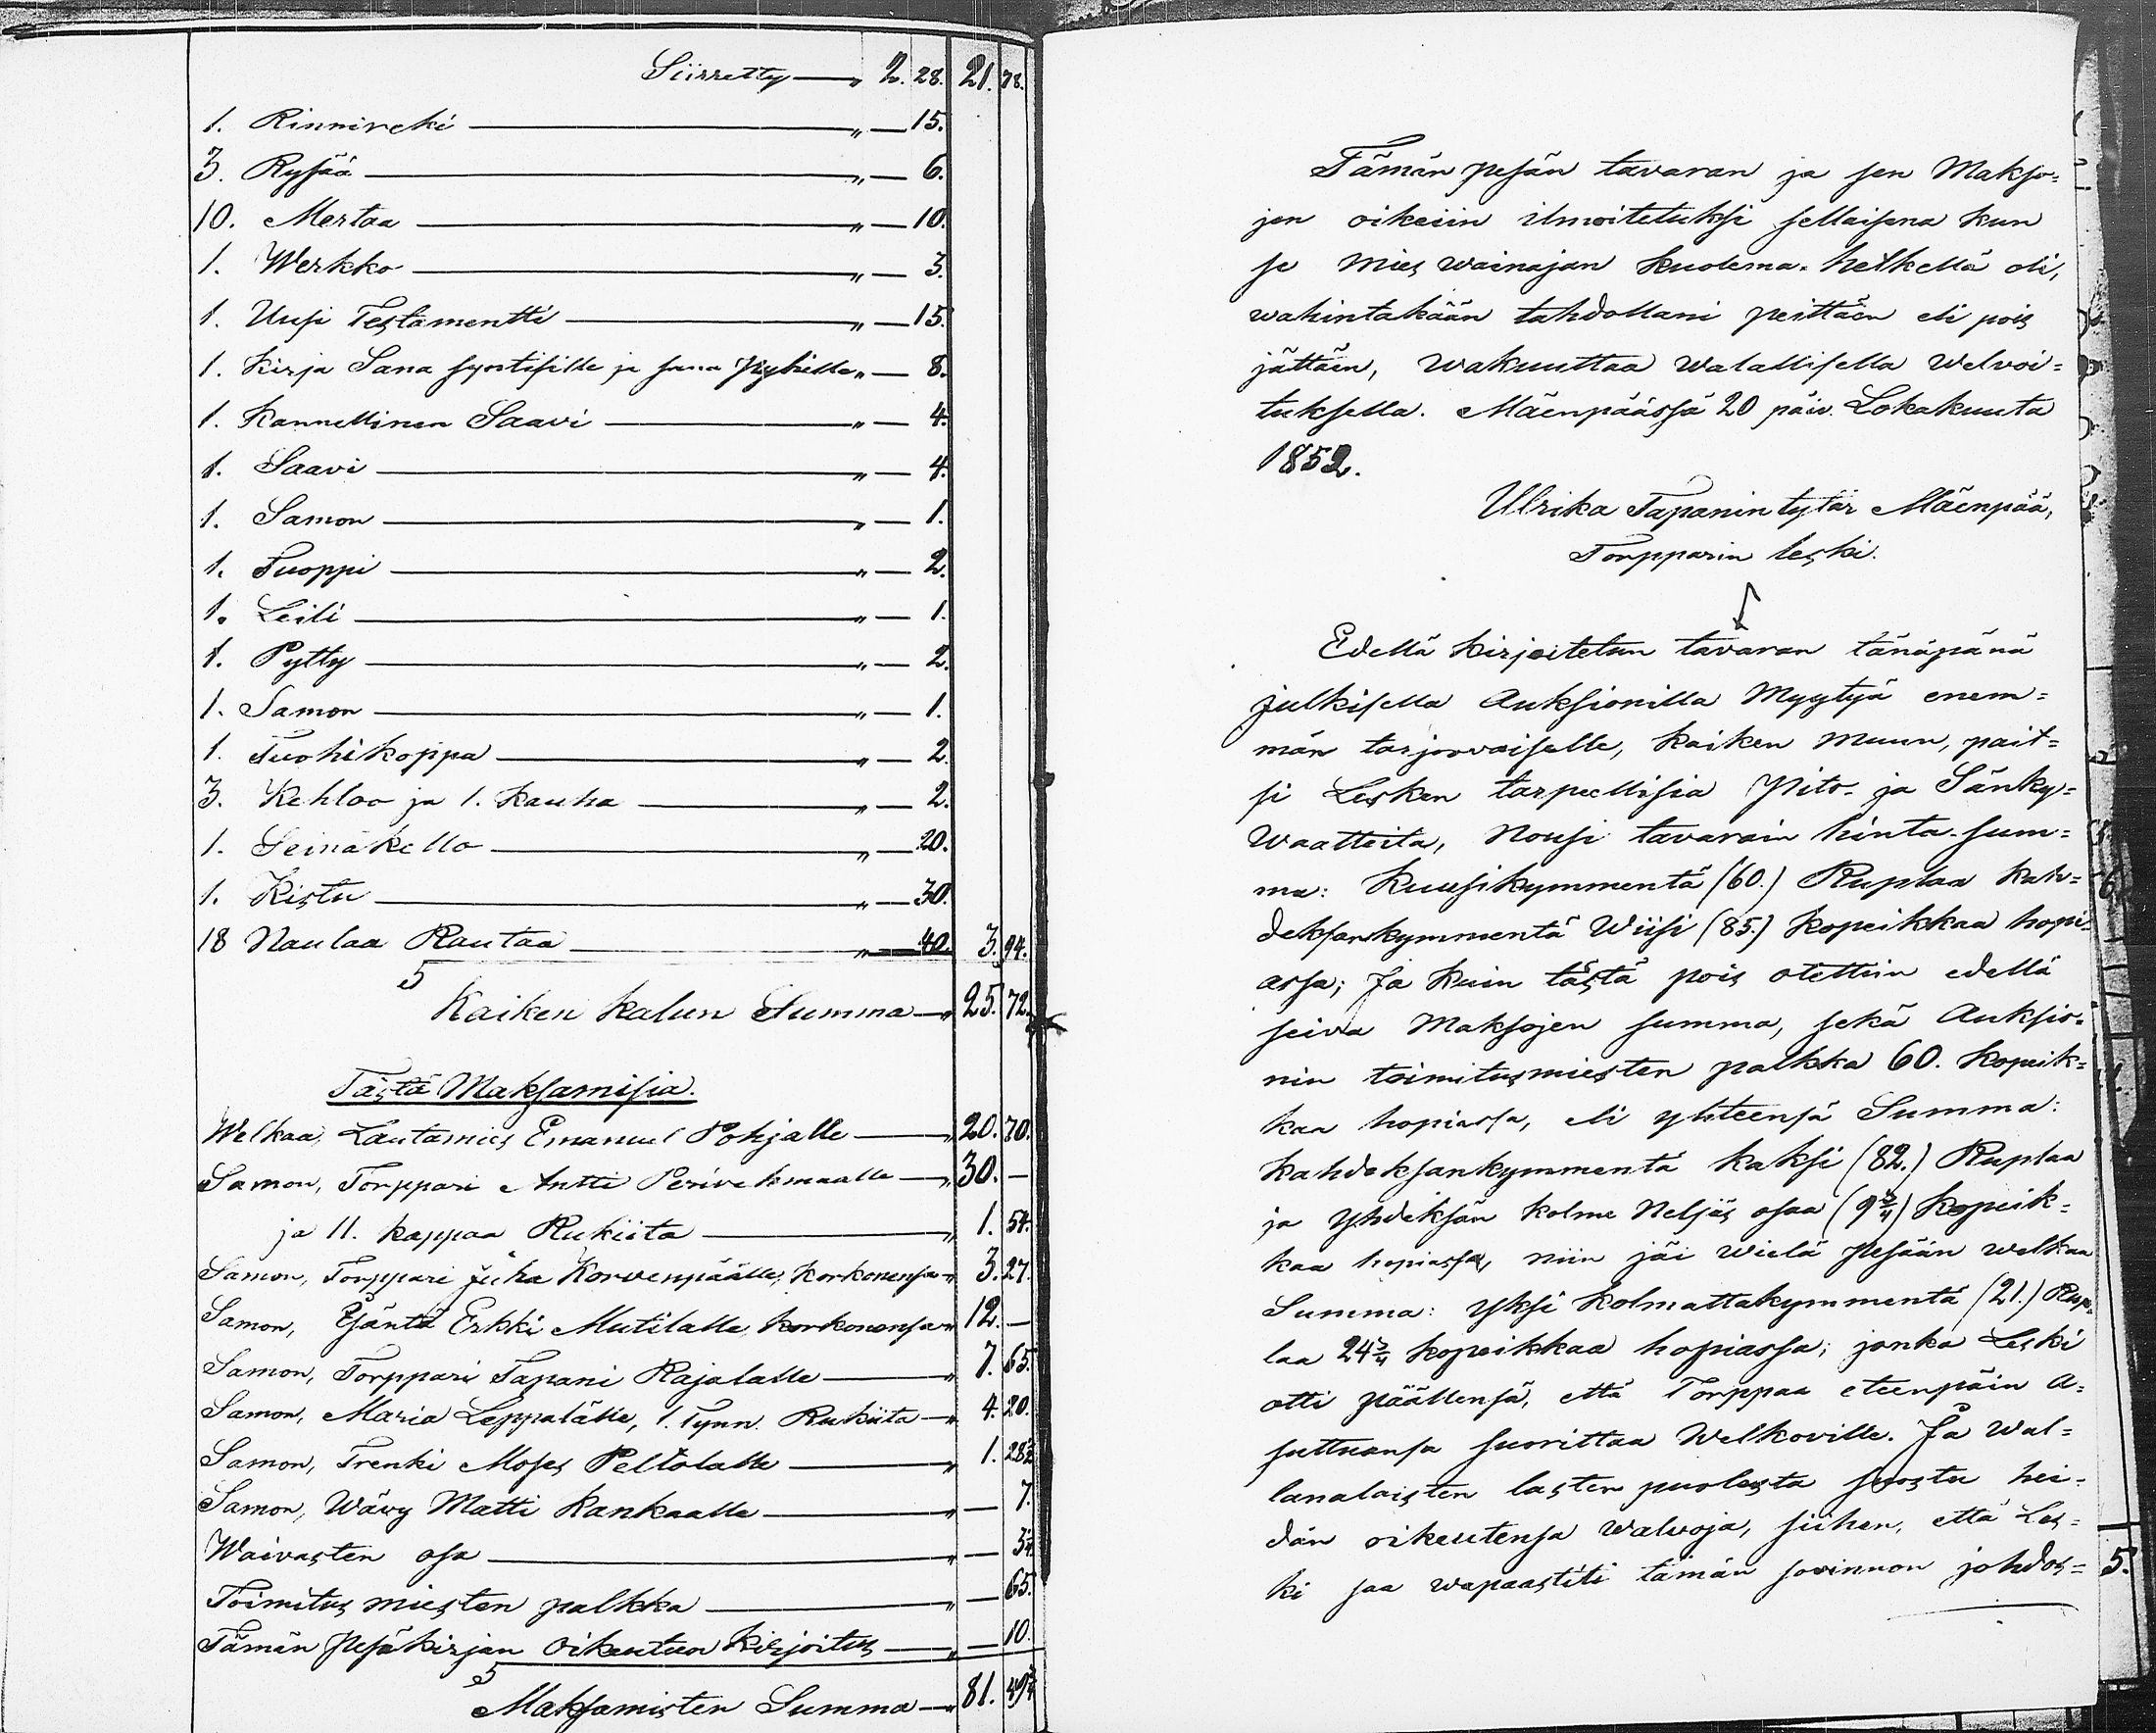 Siirretty — „ 2. 28. 21. 78.
1. Rinnireki — „ — 15.
3. Rysää — „ — 6.
10. Mertaa — „ — 10.
1. Werkko — „ — 3.
1. Uusi Testamentti — „ — 15.
1. Kirja Sana syntisille ja sana Pyhille „ — 8.
1. Kannellinen Saavi — „ — 4.
1. Saavi — „ — 4.
1. Samon — „ — 1.
1. Tuoppi — „ — 2.
1. Leili — „ — 1.
1. Pytty — „ — 2.
1. Samon — „ — 1.
1. Tuohikoppa — „ — 2.
3. Kehloo ja 1. Kauha — „ — 2.
1. Seinäkello — „ — 20.
1. Kistu — „ — 30.
18 Naulaa Rautaa — „ — 40. 3. 94.
Kaiken kalun Summa — „ 25. 72.
Tästä Maksamisia.
Welkaa, Lautamies Emanuel Pohjalle — „ 20. 70.
Samon, Torppari Antti Perivehmaalle — „ 30. —
ja 11. kappaa Rukiita — „ 1. 54.
Samon, Torppari Juha Korvenpäälle, korkonensa „ 3. 27.
Samon, Isäntä Erkki Mutilalle, korkonensa „ 12. —
Samon, Torppari Tapani Rajalalle — „ 7. 65.
Samon, Maria Leppälälle, 1. Tynn. Rukiita — „ 4. 20.
Samon, Trenki Moses Peltolalle — „ 1. 28½
Samon, Wävy Matti Kankaalle — „ — 7.
Waivasten osa — „ — 3¼
Toimitus miesten palkka — „ — 65.
Tämän Pesäkirjan Oikeuteen Kirjoitus — „ — 10.
Maksamisten Summa — „ 81. 49¾
Tämän pesän tavaran ja sen Makso=
jen oikeiin ilmoitetuksi sellaisena kun
se Mies wainajan kuolema-hetkellä oli,
wahintakään tahdollani peittäin eli pois
jättäin, wakuuttaa walallisella welvoi=
tuksella. Mäenpäässä 20 päiv. Lokakuuta
1852.
Ulrika Tapanin tytär Mäenpää,
Torpparin leski.
Edellä kirjoitetun tavaran tänäpänä
julkisella Auksionilla Myytyä enem=
män tarjoovaiselle, kaiken muun, pait=
si Lesken tarpeellisia Pito- ja Sänky-
waatteita, Nousi tavarain hinta-sum=
ma: Kuusikymmentä (60.) Ruplaa kah=
deksankymmentä Wiisi (85.) kopeikkaa hopi=
assa; Ja kuin tästä pois otettiin edellä
seiva Maksojen summa, sekä Auksio=
nin toimitusmiesten palkka 60. kopeik=
kaa hopiassa, eli yhteensä Summa:
kahdeksankymmentä kaksi (82.) Ruplaa
ja yhdeksän kolme Neljäs osaa (9¾) kopeik=
kaa hopiassa, niin jäi wielä pesään welkaa
Summa: yksi kolmattakymmentä (21.) Rup=
laa 24¾ kopeikkaa hopiassa; jonka Leski
otti päällensä, että Torppaa eteenpäin a=
suttuansa suorittaa Welkoville. Ja wal=
lanalaisten lasten puolesta suostu hei=
dän oikeutensa walvoja, siihen, että Les=
ki saa wapaastiti tämän sovinnon johdos=